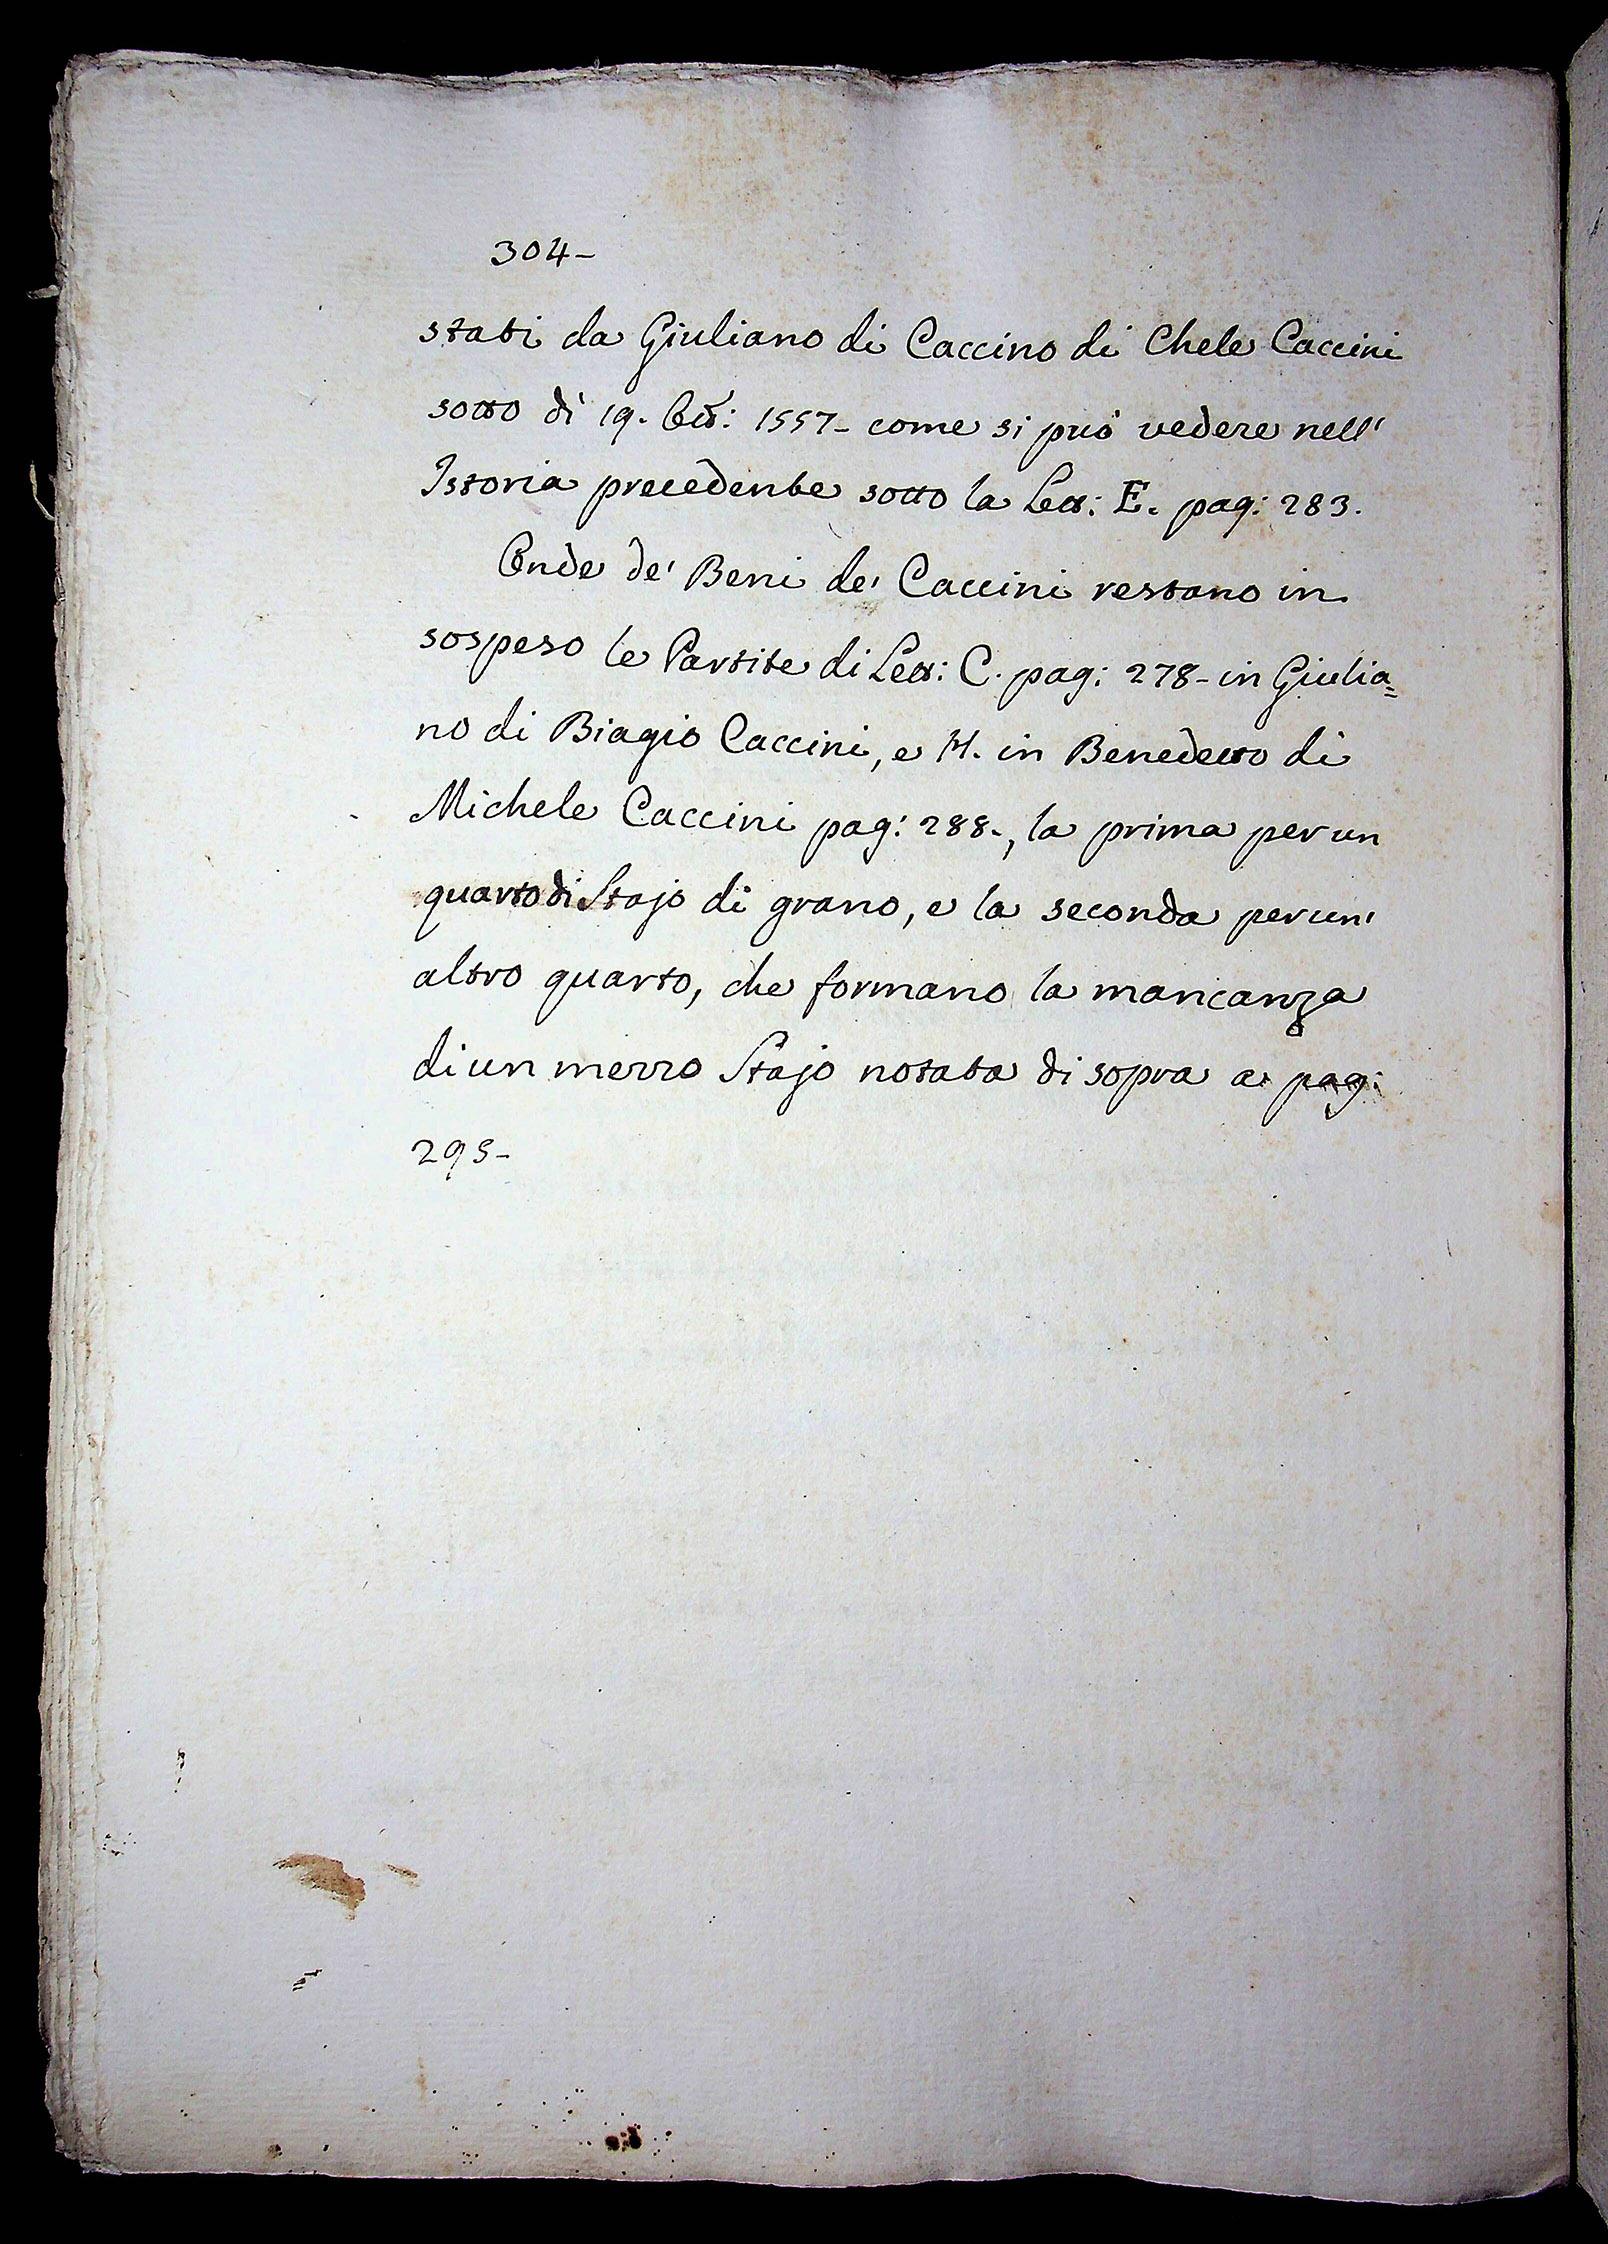 304-
stati da Giuliano di Caccino di Chele Caccini
sotto dì 19. Ott: 1557- come si può vedere nell'
Istoria precedente sotto la Lett: E. pag: 283.
Onde de' Beni de' Caccini restano in
sospeso le Partite di Lett: C. pag: 278- in Giulia=
no di Biagio Caccini, e H. in Benedetto di
Michele Caccini pag: 288-, la prima per un
quarto di Stajo di grano, e la seconda per un'
altro quarto, che formano la mancanza
di un mezzo Stajo notata di sopra a pag:
295-